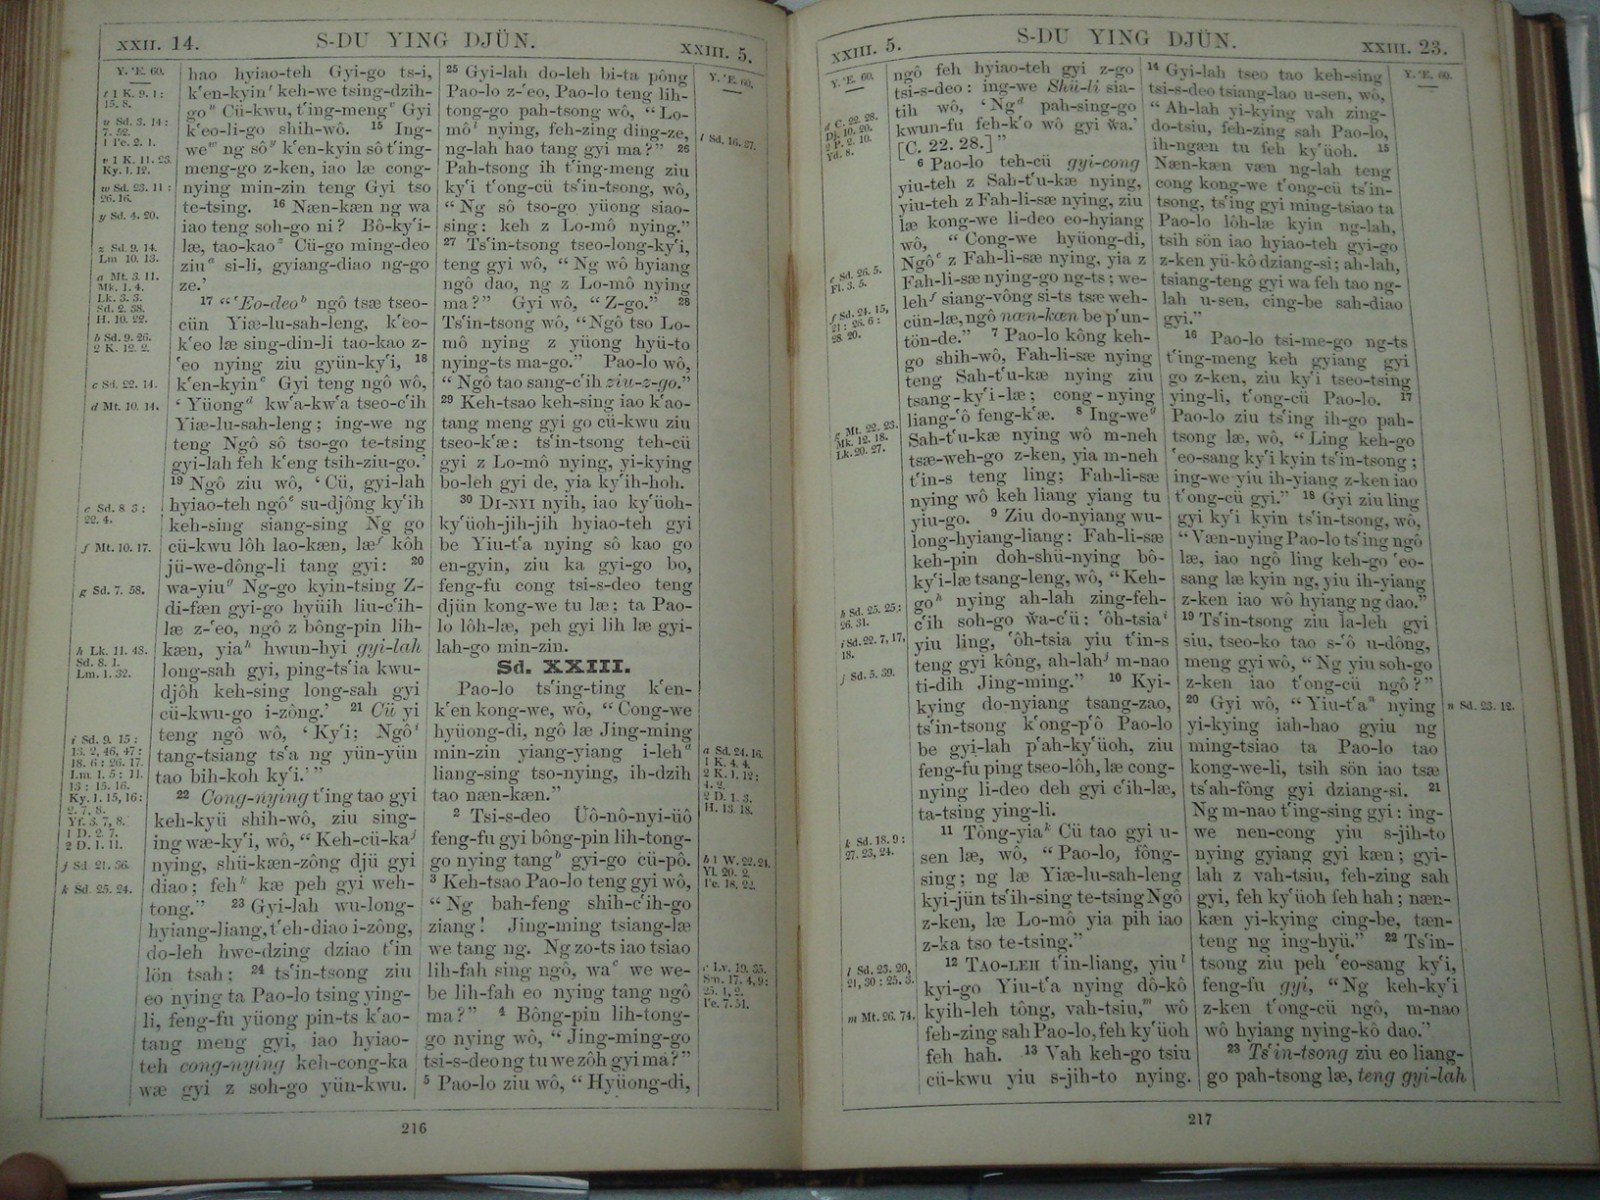 XXII. 14.
S-DU YING DJÜN.
XXIII. 5.
Y. 'E. 60.
t 1 K. 9. 1:
15. 8.
u Sd. 3. 14:
7. 52.
1 Pe. 2. 1.
v 1 K. 11. 23.
Ky. 1. 12.
w Sd. 23. 11:
26. 16.
y Sd. 4. 20.
z Sd. 9. 14.
Lm 10. 13.
a Mt. 3. 11.
Mk. 1. 4.
Lk. 3. 3.
Sd. 2. 38.
H. 10. 22.
b Sd. 9. 26.
2 K. 12. 2.
c Sd. 22. 14.
d Mt. 10. 14.
e Sd. 8 3:
22. 4.
f Mt. 10. 17.
g Sd. 7. 58.
h Lk. 11. 48.
Sd. 8. 1.
Lm. 1. 32.
i Sd. 9. 15:
13. 2, 46, 47:
18. 6: 26. 17.
Lm 1. 5: 11.
13: 15. 16.
Ky. 1. 15, 16:
2. 7, 8.
Yf. 3. 7, 8.
1 D. 2. 7.
2 D. 1. 11.
j Sd 21. 36.
k Sd. 25. 24.
hao hyiao-teh Gyi-go ts-i,
k'en-kyin t keh-we tsing-dzih-
go u Cü-kwu, t'ing-meng v Gyi
k'eo-li-go shih-wô. 15 Ing-
we w ng sô y k'en-kyin sô t'ing-
meng-go z-ken, iao læ cong-
nying min-zin teng Gyi tso
te-tsing. 16 Næn-kæn ng wa
iao teng soh-go ni? Bô-ky'i-
læ, tao-kao z Cü-go ming-deo
ziu a si-li, gyiang-diao ng-go
ze.'
17 “'Eo-deo b ngô tsæ tseo-
cün Yiæ-lu-sah-leng, k'eo-
k'eo læ sing-din-li tao-kao z-
'eo nying ziu gyün-ky'i, 18
k'en-kyin c Gyi teng ngô wô,
‘ Yüong d kw'a-kw'a tseo-c'ih
Yiæ-lu-sah-leng; ing-we ng
teng Ngô sô tso-go te-tsing
gyi-lah feh k'eng tsih-ziu-go.’
19 Ngô ziu wô, ‘ Cü, gyi-lah
hyiao-teh ngô e su-djông ky'ih
keh-sing siang-sing Ng go
cü-kwu lôh lao-kæn, læ f kôh
jü-we-dông-li tang gyi: 20
wa-yiu g Ng-go kyin-tsing Z-
di-fæn gyi-go hyüih liu-c'ih-
læ z-'eo, ngô z bông-pin lih-
kæn, yia h hwun-hyi gyi-lah
long-sah gyi, ping-ts'ia kwu-
djôh keh-sing long-sah gyi
cü-kwu-go i-zông.’ 21 Cü yi
teng ngô wô, ‘Ky'i; Ngô i
tang-tsiang ts'a ng yün-yün
tao bih-koh ky'i.’ ”
22 Cong-nying t'ing tao gyi
keh-kyü shih-wô, ziu sing-
ing wæ-ky'i, wô, “ Keh-cü-ka j
nying, shü-kæn-zông djü gyi
diao; feh k kæ peh gyi weh-
tong.” 23 Gyi-lah wu-long-
hyiang-liang, t'eh-diao i-zông,
do-leh hwe-dzing dziao t'in
lön tsah; 24 ts'in-tsong ziu
eo nying ta Pao-lo tsing ying-
li, feng-fu yüong pin-ts k'ao-
tang meng gyi, iao hyiao-
teh cong-nying keh-cong-ka
wæ gyi z soh-go yün-kwu.
25 Gyi-lah do-leh bi-ta pông
Pao-lo z-'eo, Pao-lo teng lih-
tong-go pah-tsong wô, “ Lo-
mô l nying, feh-zing ding-ze,
ng-lah hao tang gyi ma?” 26
Pah-tsong ih t'ing-meng ziu
ky'i t'ong-cü ts'in-tsong, wô,
“ Ng sô tso-go yüong siao-
sing: keh z Lo-mô nying.”
27 Ts'in-tsong tseo-long-ky'i,
teng gyi wô, “ Ng wô hyiang
ngô dao, ng z Lo-mô nying
ma?” Gyi wô, “ Z-go.” 28
Ts'in-tsong wô, “Ngô tso Lo-
mô nying z yüong hyü-to
nying-ts ma-go.” Pao-lo wô,
“ Ngô tao sang-c'ih ziu-z-go.”
29 Keh-tsao keh-sing iao k'ao-
tang meng gyi go cü-kwu ziu
tseo-k'æ: ts'in-tsong teh-cü
gyi z Lo-mô nying, yi-kying
bo-leh gyi de, yia ky'ih-hoh.
30 DI-NYI nyih, iao ky'üoh-
ky'üoh-jih-jih hyiao-teh gyi
be Yiu-t'a nying sô kao go
en-gyin, ziu ka gyi-go bo,
feng-fu cong tsi-s-deo teng
djün kong-we tu læ; ta Pao-
lo lôh-læ, peh gyi lih læ gyi-
lah-go min-zin.
Sd. XXIII.
Pao-lo ts'ing-ting k'en-
k'en kong-we, wô, “ Cong-we
hyüong-di, ngô læ Jing-ming
min-zin yiang-yiang i-leh a
liang-sing tso-nying, ih-dzih
tao næn-kæn.”
2 Tsi-s-deo Üô-nô-nyi-üô
feng-fu gyi bông-pin lih-tong-
go nying tang b gyi-go cü-pô.
3 Keh-tsao Pao-lo teng gyi wô,
“ Ng bah-feng shih-c'ih-go
ziang! Jing-ming tsiang-læ
we tang ng. Ng zo-ts iao tsiao
lih-fah sing ngô, wa c we we-
be lih-fah eo nying tang ngô
ma?” 4 Bông-pin lih-tong-
go nying wô, “ Jing-ming-go
tsi-s-deo ng tu we zôh gyi ma?”
5 Pao-lo ziu wô, “ Hyüong-di,
Y. 'E. 60.
l Sd. 16. 37.
a Sd. 24. 16.
1 K. 4. 4.
2 K. 1. 12:
4. 2.
2 D. 1. 3.
H. 13. 18.
b 1 W. 22. 24.
Yl. 20. 2.
Pe. 18. 22.
c Lv. 19. 35.
Sn. 17. 4, 9:
25. 1, 2.
Pe. 7. 51.
216
XXIII. 5.
S-DU YING DJÜN.
XXIII. 23.
Y. 'E. 60.
d C. 22. 28.
Dj. 10. 20.
2 P. 2. 10.
Yd. 8.
e Sd. 26. 5.
Fl. 3. 5.
f Sd. 24. 15,
21: 26. 6:
28. 20.
g Mt. 22. 23.
Mk. 12. 18.
Lk. 20. 27.
h Sd. 25. 25:
26. 31.
i Sd. 22. 7, 17,
18.
j Sd. 5. 39.
k Sd. 18. 9:
27. 23, 24.
l Sd. 23. 20,
21, 30: 25. 3.
m Mt. 26. 74.
ngô feh hyiao-teh gyi z-go
tsi-s-deo: ing-we Shü-li sia-
tih wô, ‘ Ng d pah-sing-go
kwun-fu feh-k'o wô gyi wa.’
[C. 22. 28.]”
6 Pao-lo teh-cü gyi-cong
yiu-teh z Sah-t'u-kæ nying,
yiu-teh z Fah-li-sæ nying, ziu
læ kong-we li-deo eo-hyiang
wô, “ Cong-we hyüong-di,
Ngô e z Fah-li-sæ nying, yia z
Fah-li-sæ nying-go ng-ts; we-
leh f siang-vông si-ts tsæ weh-
cün-læ, ngô næn-kæn be p'un-
tön-de.” 7 Pao-lo kông keh-
go shih-wô, Fah-li-sæ nying
teng Sah-t'u-kæ nying ziu
tsang-ky'i-læ; cong-nying
liang-'ô feng-k'æ. 8 Ing-we g
Sah-t'u-kæ nying wô m-neh
tsæ-weh-go z-ken, yia m-neh
t'in-s teng ling; Fah-li-sæ
nying wô keh liang yiang tu
yiu-go. 9 Ziu do-nyiang wu-
long-hyiang-liang: Fah-li-sæ
keh-pin doh-shü-nying bô-
ky'i-læ tsang-leng, wô, “ Keh-
go h nying ah-lah zing-feh-
c'ih soh-go wa-c'ü: 'ôh-tsia i
yiu ling, 'ôh-tsia yiu t'in-s
teng gyi kông, ah-lah j m-nao
ti-dih Jing-ming.” 10 Kyi-
kying do-nyiang tsang-zao,
ts'in-tsong k'ong-p'ô Pao-lo
be gyi-lah p'ah-ky'üoh, ziu
feng-fu ping tseo-lôh, læ cong-
nying li-deo deh gyi c'ih-læ,
ta-tsing ying-li.
11 Tông-yia k Cü tao gyi u-
sen læ, wô, “ Pao-lo, fông-
sing; ng læ Yiæ-lu-sah-leng
kyi-jün ts'ih-sing te-tsing Ngô
z-ken, læ Lo-mô yia pih iao
z-ka tso te-tsing.”
12 TAO-LEH t'in-liang, yiu l
kyi-go Yiu-t'a nying dô-kô
kyih-leh tông, vah-tsiu, m wô
feh-zing sah Pao-lo, feh ky'üoh
feh hah. 13 Vah keh-go tsiu
cü-kwu yiu s-jih-to nying.
14 Gyi-lah tseo tao keh-sing
tsi-s-deo tsiang-lao u-sen, wô,
“ Ah-lah yi-kying vah zing-
do-tsiu, feh-zing sah Pao-lo,
ih-ngæn tu feh ky'üoh. 15
Næn-kæn væn ng-lah teng
cong kong-we t'ong-cü ts'in-
tsong, ts'ing gyi ming-tsiao ta
Pao-lo lôh-læ kyin ng-lah,
tsih sön iao hyiao-teh gyi-go
z-ken yü-kô dziang-si; ah-lah,
tsiang-teng gyi wa feh tao ng-
lah u-sen, cing-be sah-diao
gyi.”
16 Pao-lo tsi-me-go ng-ts
t'ing-meng keh gyiang gyi
go z-ken, ziu ky'i tseo-tsing
ying-li, t'ong-cü Pao-lo. 17
Pao-lo ziu ts'ing ih-go pah-
tsong læ, wô, “ Ling keh-go
'eo-sang ky'i kyin ts'in-tsong;
ing-we yiu ih-yiang z-ken iao
t'ong-cü gyi.” 18 Gyi ziu ling
gyi ky'i kyin ts'in-tsong, wô,
“ Væn-nying Pao-lo ts'ing ngô
læ, iao ngô ling keh-go 'eo-
sang læ kyin ng, yiu ih-yiang
z-ken iao wô hyiang ng dao.”
19 Ts'in-tsong ziu la-leh gyi
siu, tseo-ko tao s-'ô u-dông,
meng gyi wô, “ Ng yiu soh-go
z-ken iao t'ong-cü ngô?”
20 Gyi wô, “ Yiu-t'a n nying
yi-kying iah-hao gyiu ng
ming-tsiao ta Pao-lo tao
kong-we-li, tsih sön iao tsæ
ts'ah-fông gyi dziang-si. 21
Ng m-nao t'ing-sing gyi: ing-
we nen-cong yiu s-jih-to
nying gyiang gyi kæn; gyi-
lah z vah-tsiu, feh-zing sah
gyi, feh ky'üoh feh hah; næn-
kæn yi-kying cing-be, tæn-
teng ng ing-hyü.” 22 Ts'in-
tsong ziu peh 'eo-sang ky'i,
feng-fu gyi, “ Ng keh-ky'i
z-ken t'ong-cü ngô, m-nao
wô hyiang nying-kô dao.”
23 Ts'in-tsong ziu eo liang-
go pah-tsong læ, teng gyi-lah
Y. 'E. 60.
n Sd. 23. 12.
217